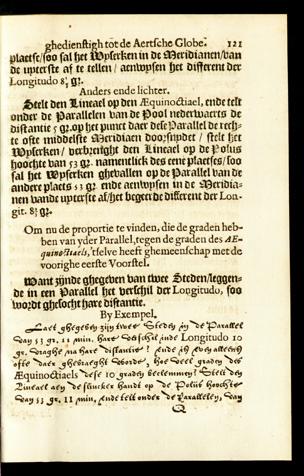 ghedienstigh tot de Aertsche Globe. 121
plaetse/soo sal het Wyserken in de Meridianen/van
de upterste af te tellen / aenwysen het different der
Longitudo 8⅓ gr.
Anders ende lichter.
Stelt den Lineael op den Æquinoctiael, ende telt
onder de Parallelen van de Pool nederwaerts de
distantie 5 gr. op het punt daer dese Parallel de rech-
te ofte middelste Meridiaen doorsnydet / stelt het
Wyserken / verbrenght den Lineael op de Polus
hoochte van 53 gr. namentlick des eene plaetses/soo
sal het Wyserken ghevallen op de Parallel van de
andere plaets 53 gr. ende aenwysen in de Meridia-
nen vande upterste af/het begeerde different der Lon-
git. 8⅓ gr.
Om nu de proportie te vinden, die de graden heb-
ben van yder Parallel, tegen de graden des Æ-
quinoctiaels, 'tselve heeft ghemeenschap met de
voorighe eerste Voorstel.
Want zijnde ghegeven van twee Steden/leggen-
de in een Parallel het verschil der Longitudo, soo
wordt ghesocht hare distantie.
By Exempel.
Laet ghegeven zijn twee Steden in de Parallel
van 53 gr. 11 min. hare verschil inde Longitudo 10
gr. vraghe na hare distantie? ende oft even alleens
ofte daer ghevraeght worde, hoe veel graden des
Æquinoctiaels dese 10 graden beslemmen? Stelt den
Lineael aen de slincker handt op de Polus hoochte
van 53 gr. 11 min. ende telt onder de Parallelen, van
Q